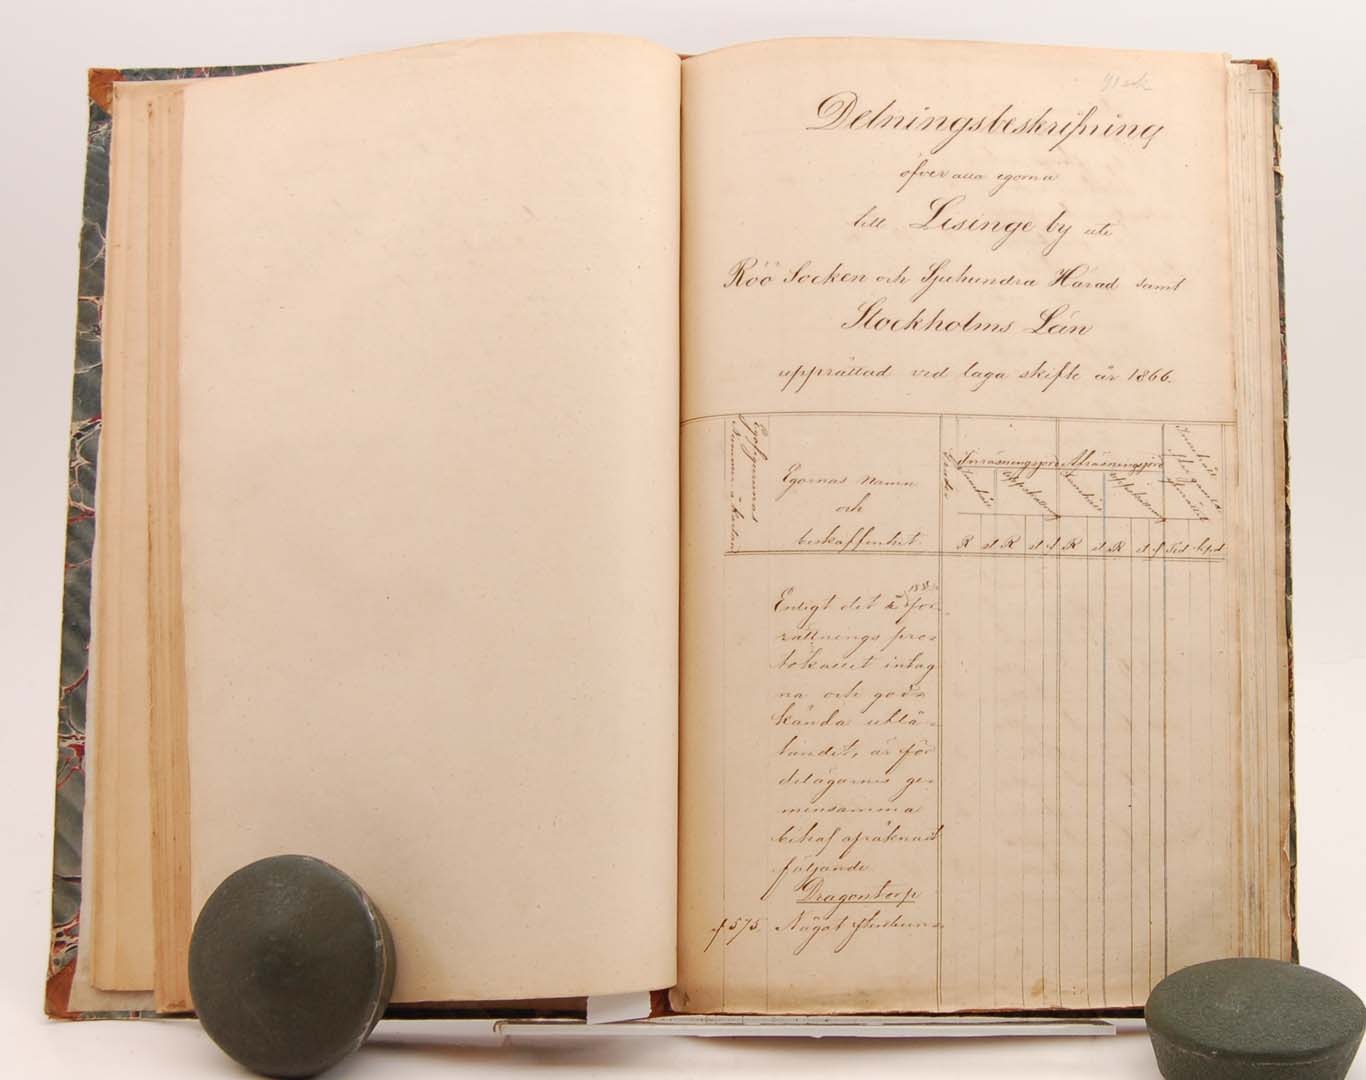 Delningsbeskrifning
öfver alla egorna
till Lisinge by uti
Röö Socken och Sjuhundra Härad samt
Stockholms Län
upprättad vid laga skifte år 1866.
Egofigurernas
Nummer å kartan
Egornas namn
och
beskaffenhet.
Grader
Inrösningsjord Afrösningsjord
Innehåll Uppskattning Innehåll Uppskattning
Innehåll
R st R st R st R st
Enligt det i för-
rättnings pro-
tokollet intag
na och god-
kända utlå-
tandet, är för
delägarnes ge-
mensamma
behof afräknadt
följande
Dragontorp
575. Något